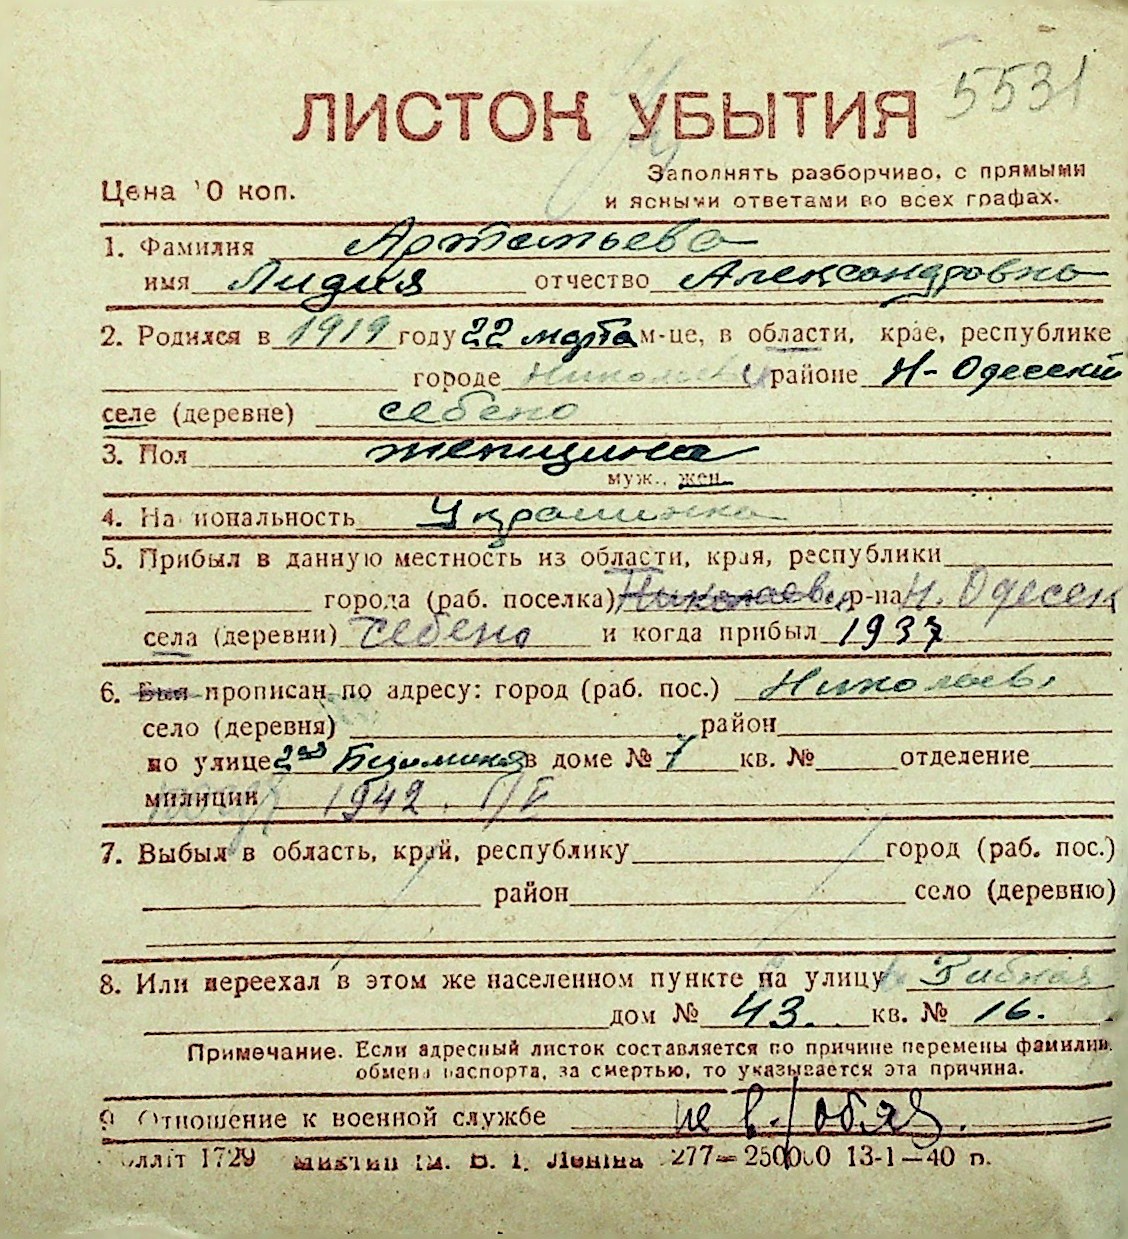 5531
ЛИСТОК УБЫТИЯ
Цена 10 коп.
Заполнять разборчиво, с прямыми
и ясными ответами во всех графах.
1. Фамилия Артемьева
имя Лидия отчество Александровна
2. Родился в 1919 году 22 марта м-це, в области, крае, республике
городе Николаев районе Н-Одесский
селе (деревне) себено
3. Пол женщина
муж., жен.
4. Национальность Украинка
5. Прибыл в данную местность из области, края, республики
города (раб. поселка) Николаев р-на Н. Одесск
села (деревни) себено и когда прибыл 1937
6. Был прописан по адресу: город (раб. пос.) Николаев
село (деревня) район
по улице 2ая в доме № 7 кв. № отделение
милиции 1942.
7. Выбыл в область, край, республику город (раб. пос.)
район село (деревню)
8. Или переехал в этом же населенном пункте на улицу
дом № 43. кв. № 16.
Примечание. Если адресный листок составляется по причине перемены фамилии,
обмена паспорта, за смертью, то указывается эта причина.
9. Отношение к военной службе не в/обяз.
277—250000 13-1—40 р.